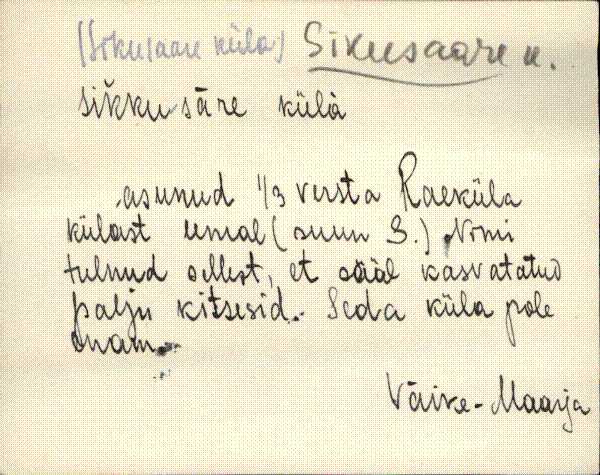 (Sikusaare küla) Sikusaare k.
sik̆kusāre külà
asunud 1/3 versta Raeküla
külast eemal (suun S.) Nimi
tulnud sellest, et sääl kasvatatud
palju kitsesid. Seda küla pole
enam.
Väike-Maarja